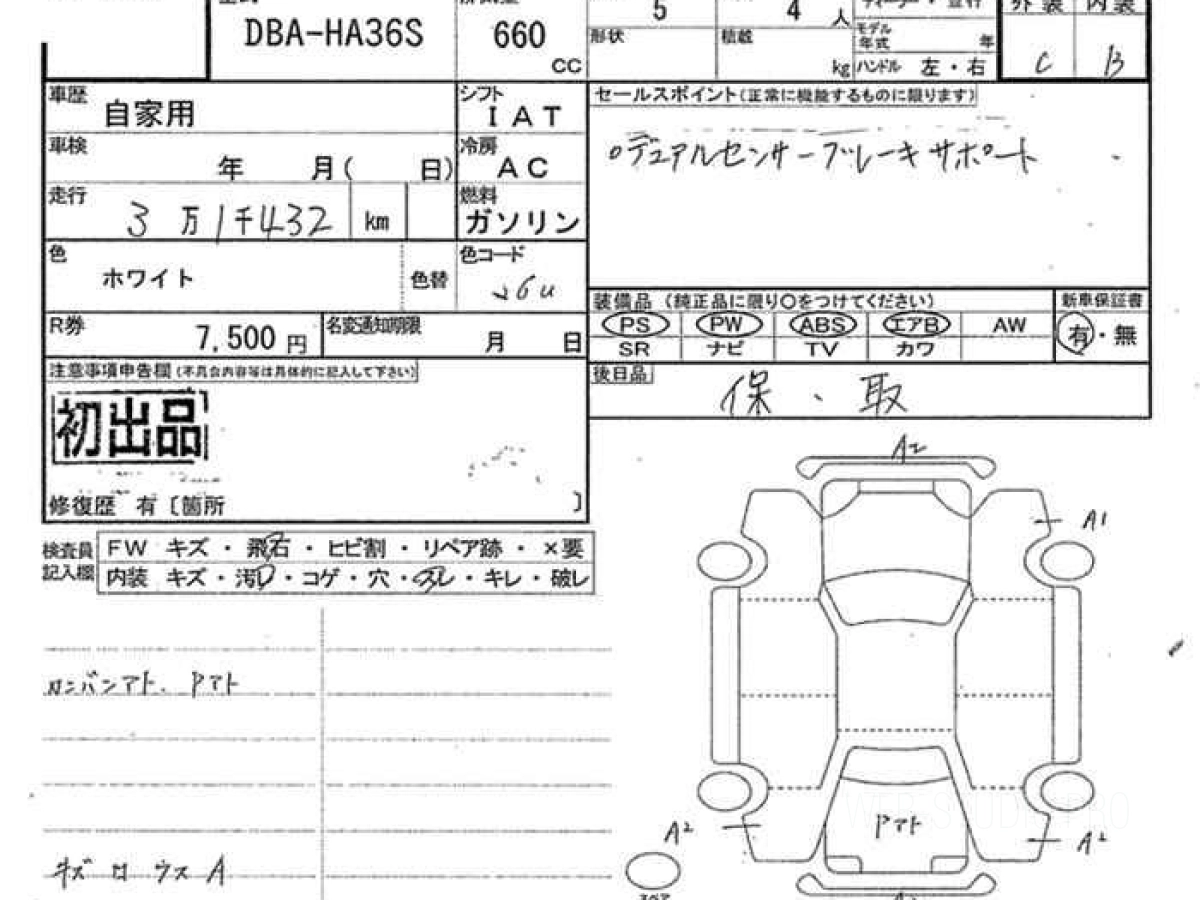 DBA-HA36S
660
CC
5
4
人
形状
積載
kg
モデル
年式
年
ハンドル 左・右
外装 内装
C B
車歴
自家用
シフト
IAT
車検
年 月( 日)
冷房
AC
走行
3万1千432 km
燃料
ガソリン
色
ホワイト
色替
色コード
26U
R券
7,500円
名変通知期限
月 日
セールスポイント(正常に機能するものに限ります)
○デュアルセンサーブレーキサポート
装備品 (純正品に限り○をつけてください)
新車保証書
PS PW ABS エアB AW
有・無
SR ナビ TV カワ
後日品
保・取
注意事項申告欄(不具合内容等は具体的に記入して下さい)
初出品
修復歴 有〔箇所 〕
検査員
記入欄
FW キズ・飛石・ヒビ割・リペア跡・×要
内装 キズ・汚レ・コゲ・穴・スレ・キレ・破レ
カンバンアト、Pアト
キズ ロ ウス A
A2
A1
A2
Pアト
A2